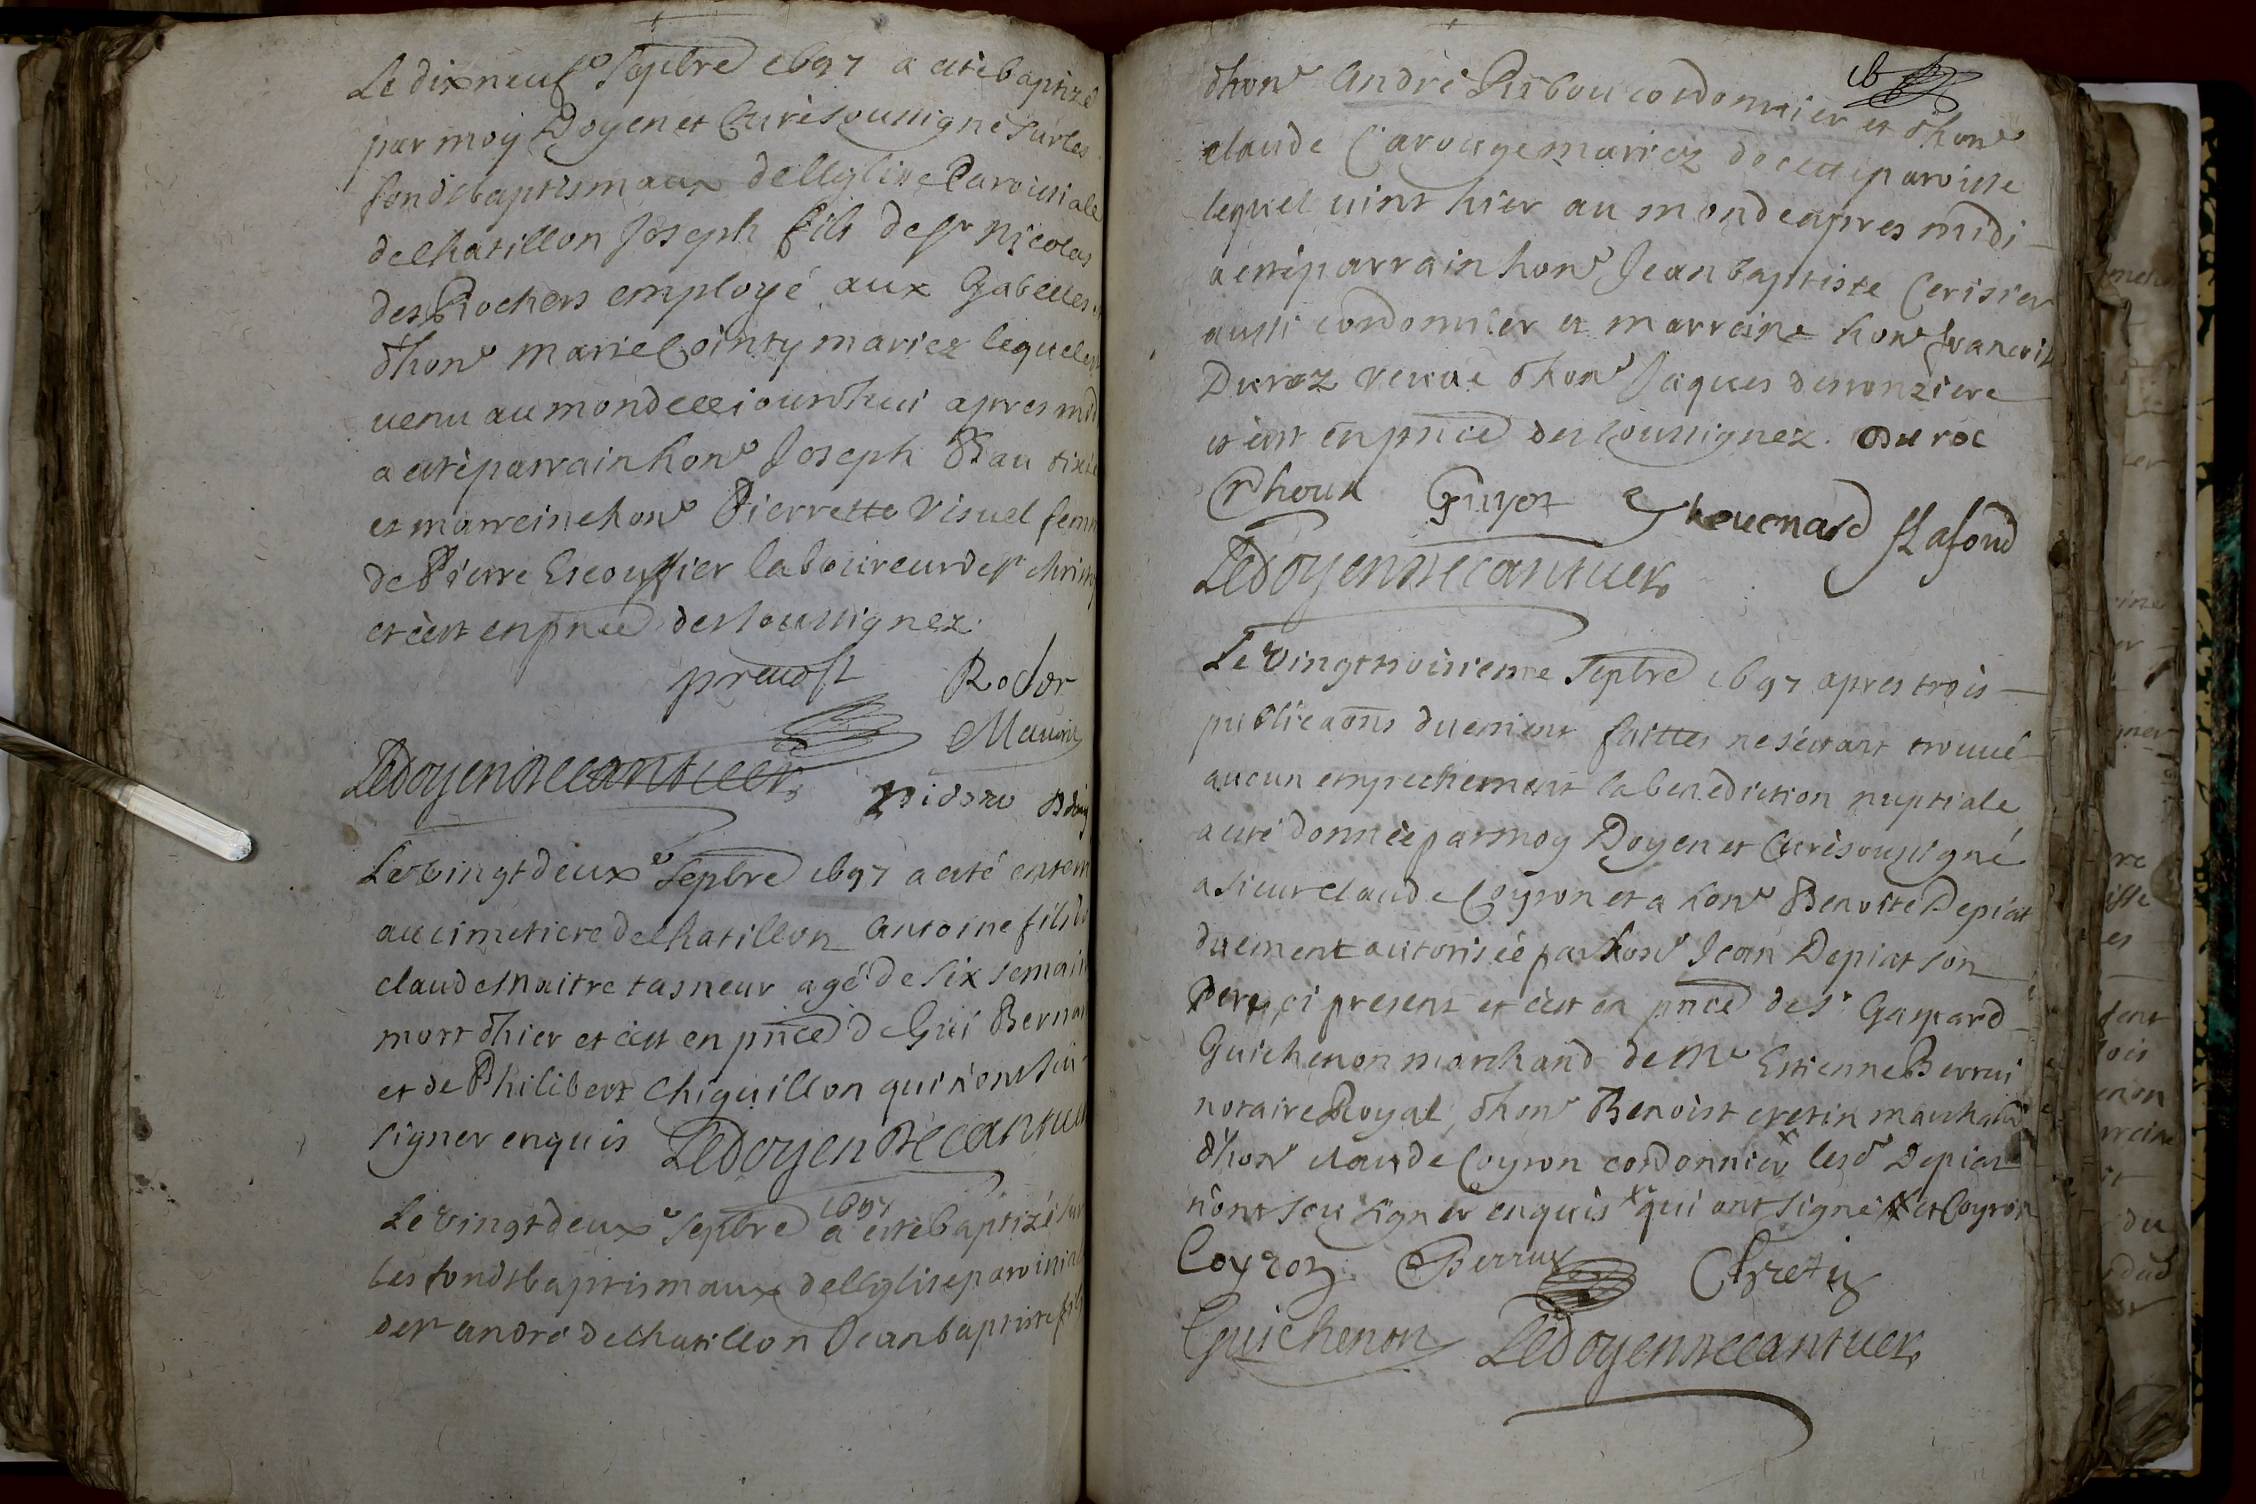 Le dixneuf.e Sepbre 1697 a etè baptizé
par moy Doyen et Curè soussignè sur les
fonds baptismaux de l'Eglise Paroissiale
de Chatillon Joseph fils de sr Nicolas
des Rochers employé aux Gabelles
d'hon.e Marie Cointy mariez lequel est
venu au monde cejourdhui apres midi
a etè parrain hon.e Joseph
et marreine hon.e Pierrette Visuel femme
de Pierre Escoffier laboureur de st
et c'est en pnce des soussignez.
prevost Rocher
Mauvin
LeDoyen Recantuer
Le vingtdeux.e Sepbre 1697 a eté enterré
au cimetiere de Chatillon Antoine fils de
claude Maitre tasneur agé de six semaines
mort d'hier et c'est en pnce de Gui Bernard
et de Philibert Chiquillon qui n'ont sui
signer enquis LeDoyen Recantuer
Le vingtdeux.e Sepbre 1697 a etè baptizé sur
les fonds baptismaux de l'Eglise paroissiale
de st André de Chatillon Jean baptiste fils
16
d'hon.e Andrè Bisbou cordonnier et d'hon.e
claude Carouge mariez de cette paroisse
lequel vint hier au monde apres midi
a etè parrain hon.e Jean baptiste Cerisier
aussi cordonnier et marreine hon.e francoise
Duroz veuve d'hon.e Jaques desronziere
et c'est en pnce des soussignez. Duroc
Rhoux Guyot Thouenard Lafond
LeDoyen Recantuer
Le vingttroisieme Sepbre 1697 apres trois
publicaons duement faittes ne s'etant trouvé
aucun empechement la benediction nuptiale
a eté donnèe par moy Doyen et Curè soussigné
a sieur claude Coyron et a hon.e Benoite Depiat
duement autorisèe par hon.e Jean Depiat son
Pere ci present et c'est en pnce de sr Gaspard
Guichenon marchand de Me Estienne Berrui
notaire Royal, d'hon.e Benoist cretin marchand
d'hon.e claude Coyron cordonnier x lesd. Depiat
n'ont seu signer enquis x qui ont signé et Coyron
Coyron Berruy Cretin
Guichenon LeDoyen Recantuer